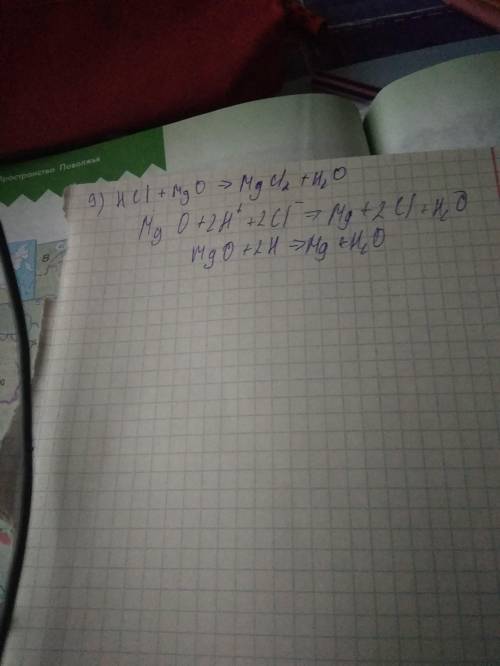 Пространство Поволжья
9) HCl + MgO => MgCl₂ + H₂O
MgO + 2H⁺ + 2Cl⁻ => Mg + 2Cl + H₂O
MgO + 2H => Mg + H₂O